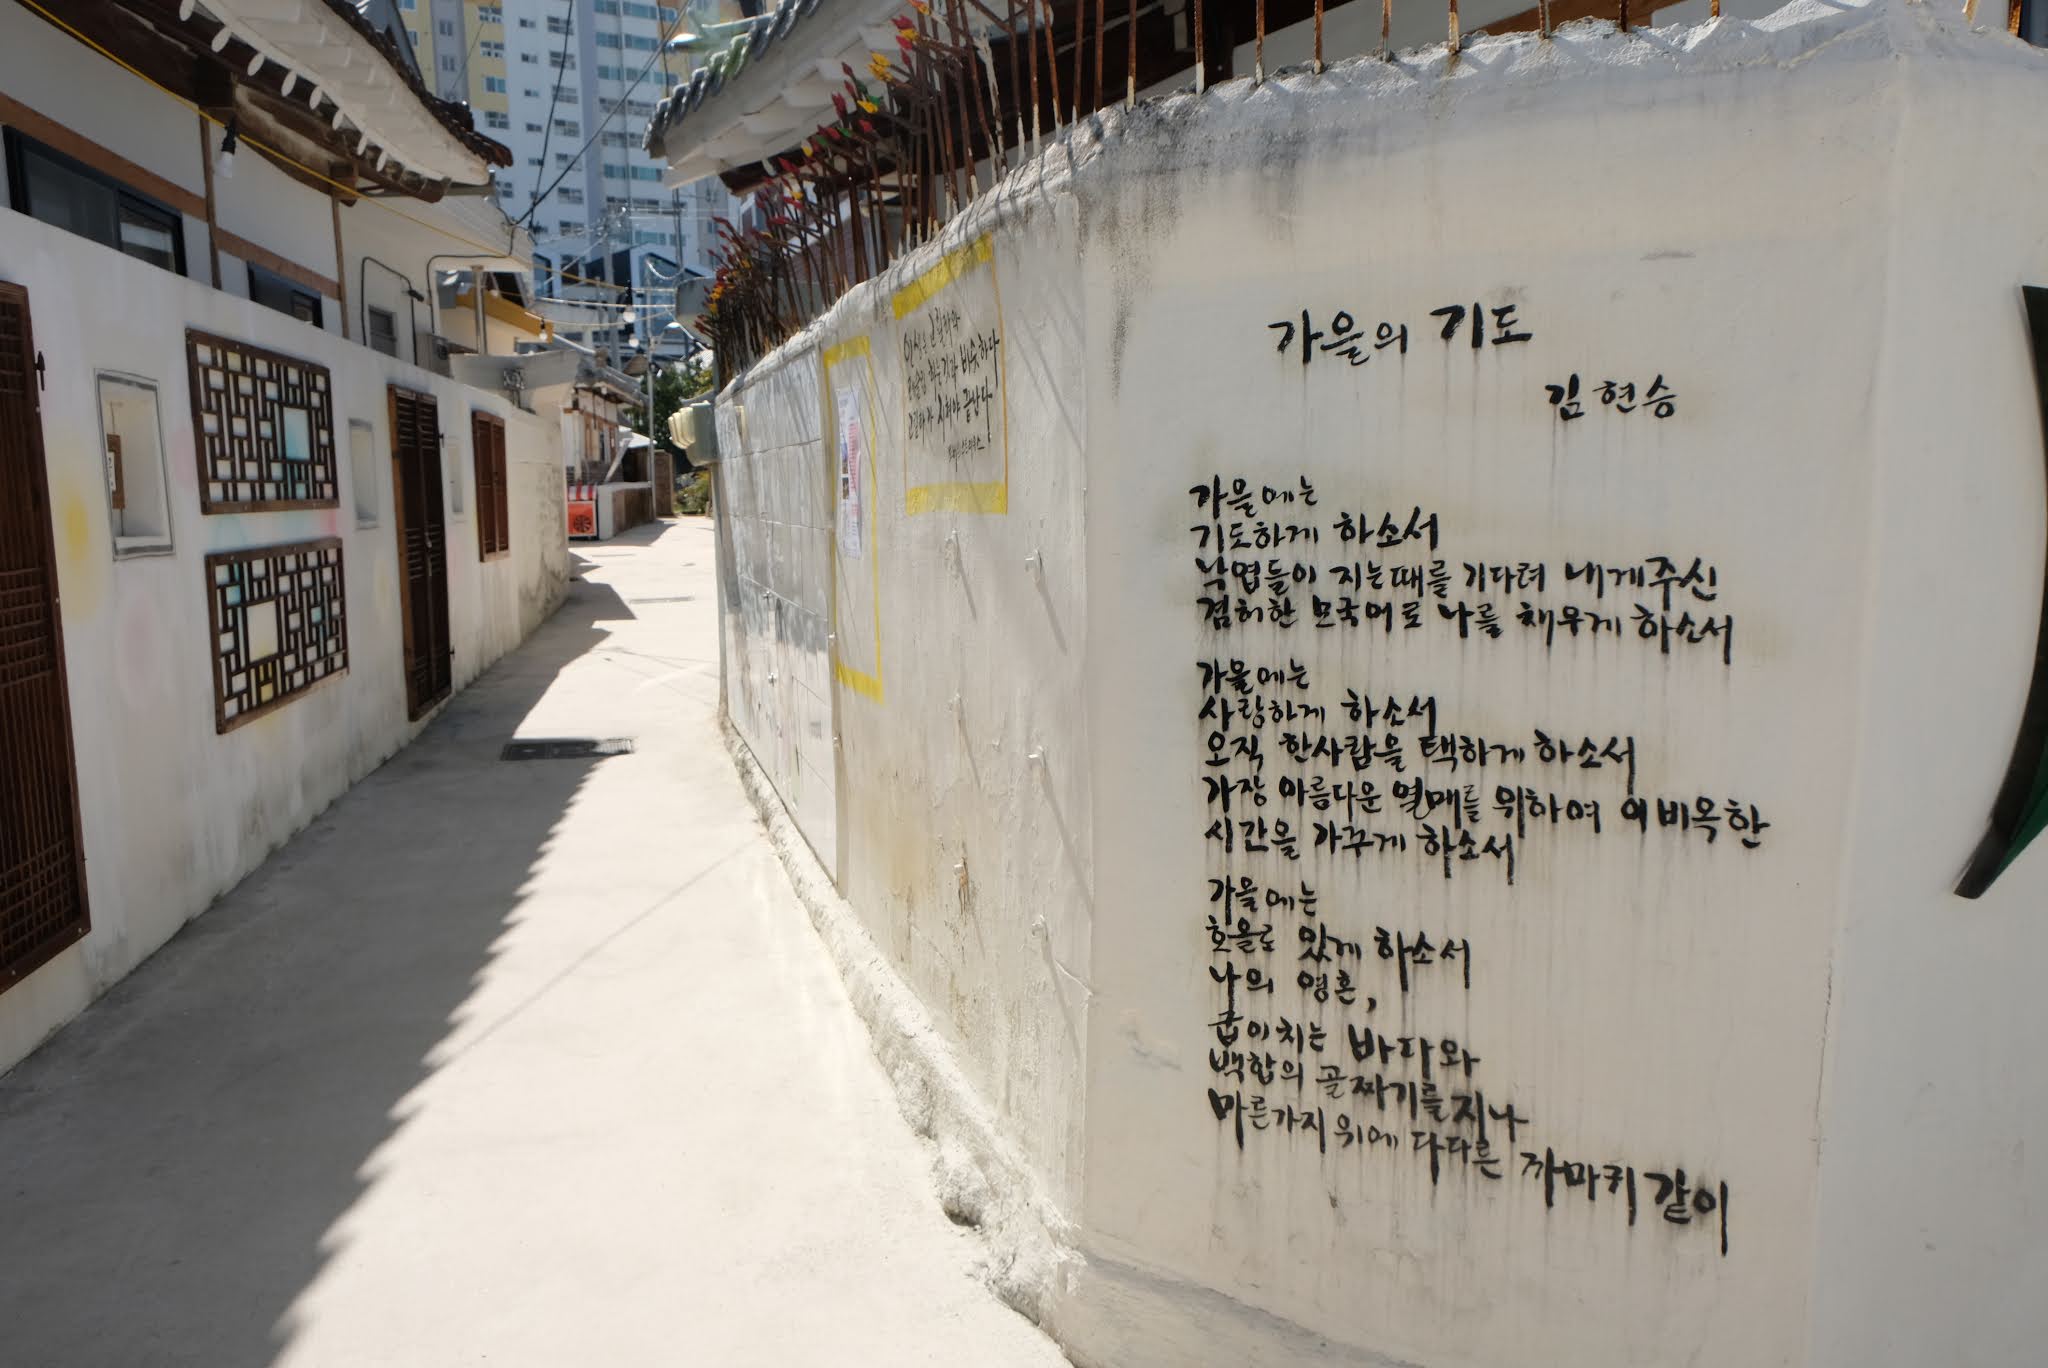 인생은 근월한와
바숫하다
끝난다
가을의 기도
김현승
가을에는
기도하게 하소서
낙엽들이 지는때를 기다려 내게주신
겸허한 모국어로 나를 채우게 하소서
가을에는
사랑하게 하소서
오직 한사람을 택하게 하소서
가장 아름다운 열매를 위하여 이비옥한
시간을 가꾸게 하소서
가을에는
호올로 있게 하소서
나의 영혼,
굽이치는 바다와
백합의 골짜기를지나
마른가지 위에 다다른 까마귀 같이